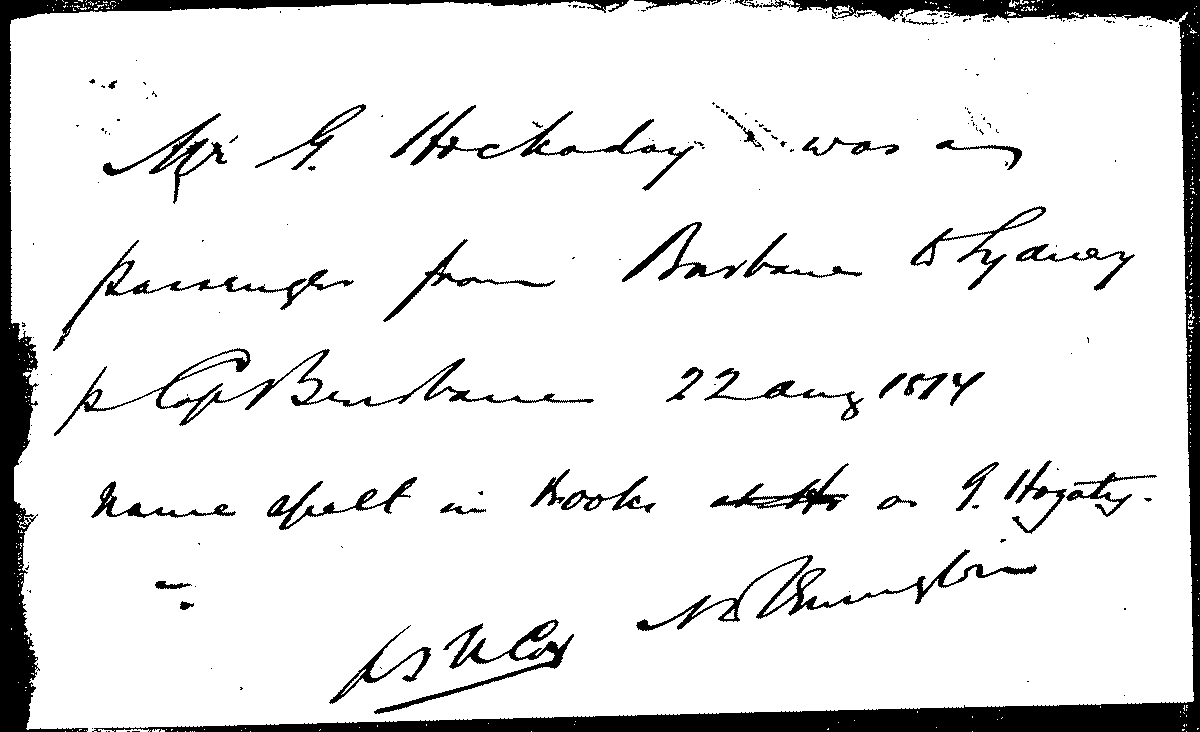 Mr G. Hockaday was a
passenger from Brisbane to Sydney
p Cap Brisbane 22 aug 1874
name spelt in books as G. Hogaty.
p S N Co